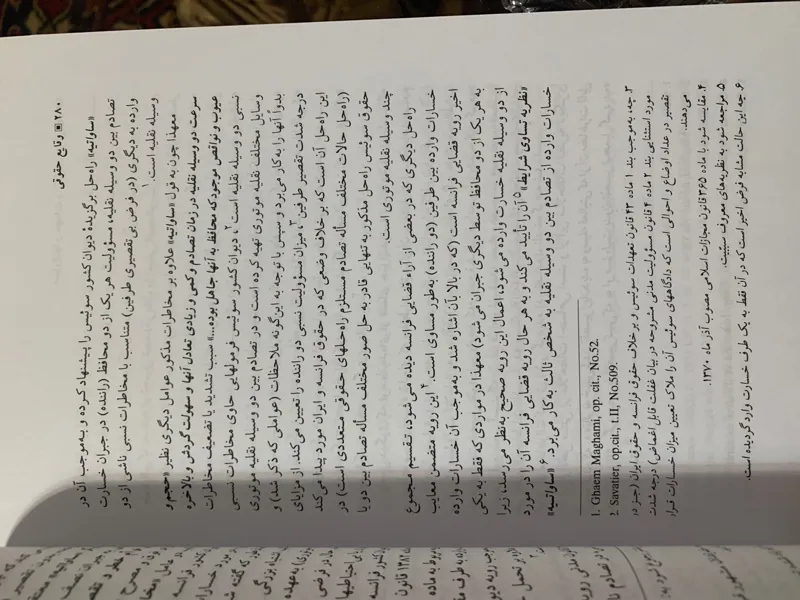 ۲۸۰ ▣ وقایع حقوقی
«ساواتیه» راه‌حل برگزیدهٔ دیوان کشور سوئیس را پیشنهاد کرده و به‌موجب آن در
تصادم بین دو وسیله نقلیه، مسؤولیت هر یک از دو محافظ (راننده) در جبران خسارت
وارده به دیگری (در فرض بی‌تقصیری طرفین) متناسب با مخاطرات نسبی ناشی از دو
وسیله نقلیه است.۱
معهذا چون به قول «ساواتیه» علاوه بر مخاطرات مذکور عوامل دیگری نظیر «حجم و
سرعت دو وسیله نقلیه در زمان تصادم و کمی و زیادی تعادل آنها و سهولت گردش و بالاخره
عیوب و نواقص موجود که محافظ به آنها جاهل بوده...» سبب تشدید یا تضعیف مخاطرات
نسبی دو وسیله نقلیه است۲، دیوان کشور سوئیس فرمولهایی حاوی مخاطرات نسبی
وسایل مختلف نقلیه موتوری تهیه کرده است و در تصادم بین دو وسیله نقلیه موتوری
بدواً آنها را به کار می‌برد و سپس با توجه به این‌گونه ملاحظات (عواملی که ذکر شد) و
درجه شدت تقصیر طرفین۳، میزان مسؤولیت نسبی دو راننده را تعیین می‌کند. از مزایای
این راه‌حل آن است که بر خلاف وضعی که در حقوق فرانسه و ایران مورد پیدا می‌کند
(راه‌حل حالات مختلف مسأله تصادم مستلزم راه‌حلهای حقوقی متعددی است) در
حقوق سوئیس راه‌حل مذکور به تنهایی قادر به حل صور مختلف مسأله تصادم بین دو یا
چند وسیله نقلیه موتوری است.
راه‌حل دیگری که در بعضی از آراء قضایی فرانسه دیده می‌شود، تقسیم مجموع
خسارات وارده بین طرفین (دو راننده) به‌طور مساوی است.۴ این رویه متضمن معایب
اخیر رویه قضایی فرانسه است (که در بالا بآن اشاره شد و به‌موجب آن خسارات وارده
به هر یک از دو محافظ توسط دیگری جبران می‌شود) معهذا در مواردی که فقط به یکی
از دو وسیله نقلیه خسارت وارده می‌شود، اعمال این رویه صحیح به‌نظر می‌رسد، زیرا
«نظریه تساوی شرایط»۵ آن را تأیید می‌کند و به هر حال رویه قضایی فرانسه آن را در مورد
خسارات وارده از تصادم بین دو وسیله نقلیه به شخص ثالث به‌کار می‌برد.۶ «ساواتیه»
1. Ghaem Maghami, op. cit., No.52.
2. Savatier, op.cit., t.II, No.509.
۳. چه، به‌موجب بند ۱ ماده ۴۳ قانون تعهدات سوئیس و بر خلاف حقوق فرانسه و حقوق ایران (بجز در
مورد استثنایی بند ۲ ماده ۴ قانون مسؤولیت مدنی مشروحه در بیان غفلت قابل اغماض) درجه شدت
تقصیر در عداد اوضاع و احوالی است که دادگاههای سوئیس آن را ملاک تعیین میزان خسارات قرار
می‌دهند.
۴. مقایسه شود با ماده ۳۶۵ قانون مجازات اسلامی مصوب آذر ماه ۱۳۷۰.
۵. مراجعه شود به نظریه‌های معروف سببیت.
۶. چه این حالت مشابه فرض اخیر است که در آن فقط به یک طرف خسارت وارد گردیده است.